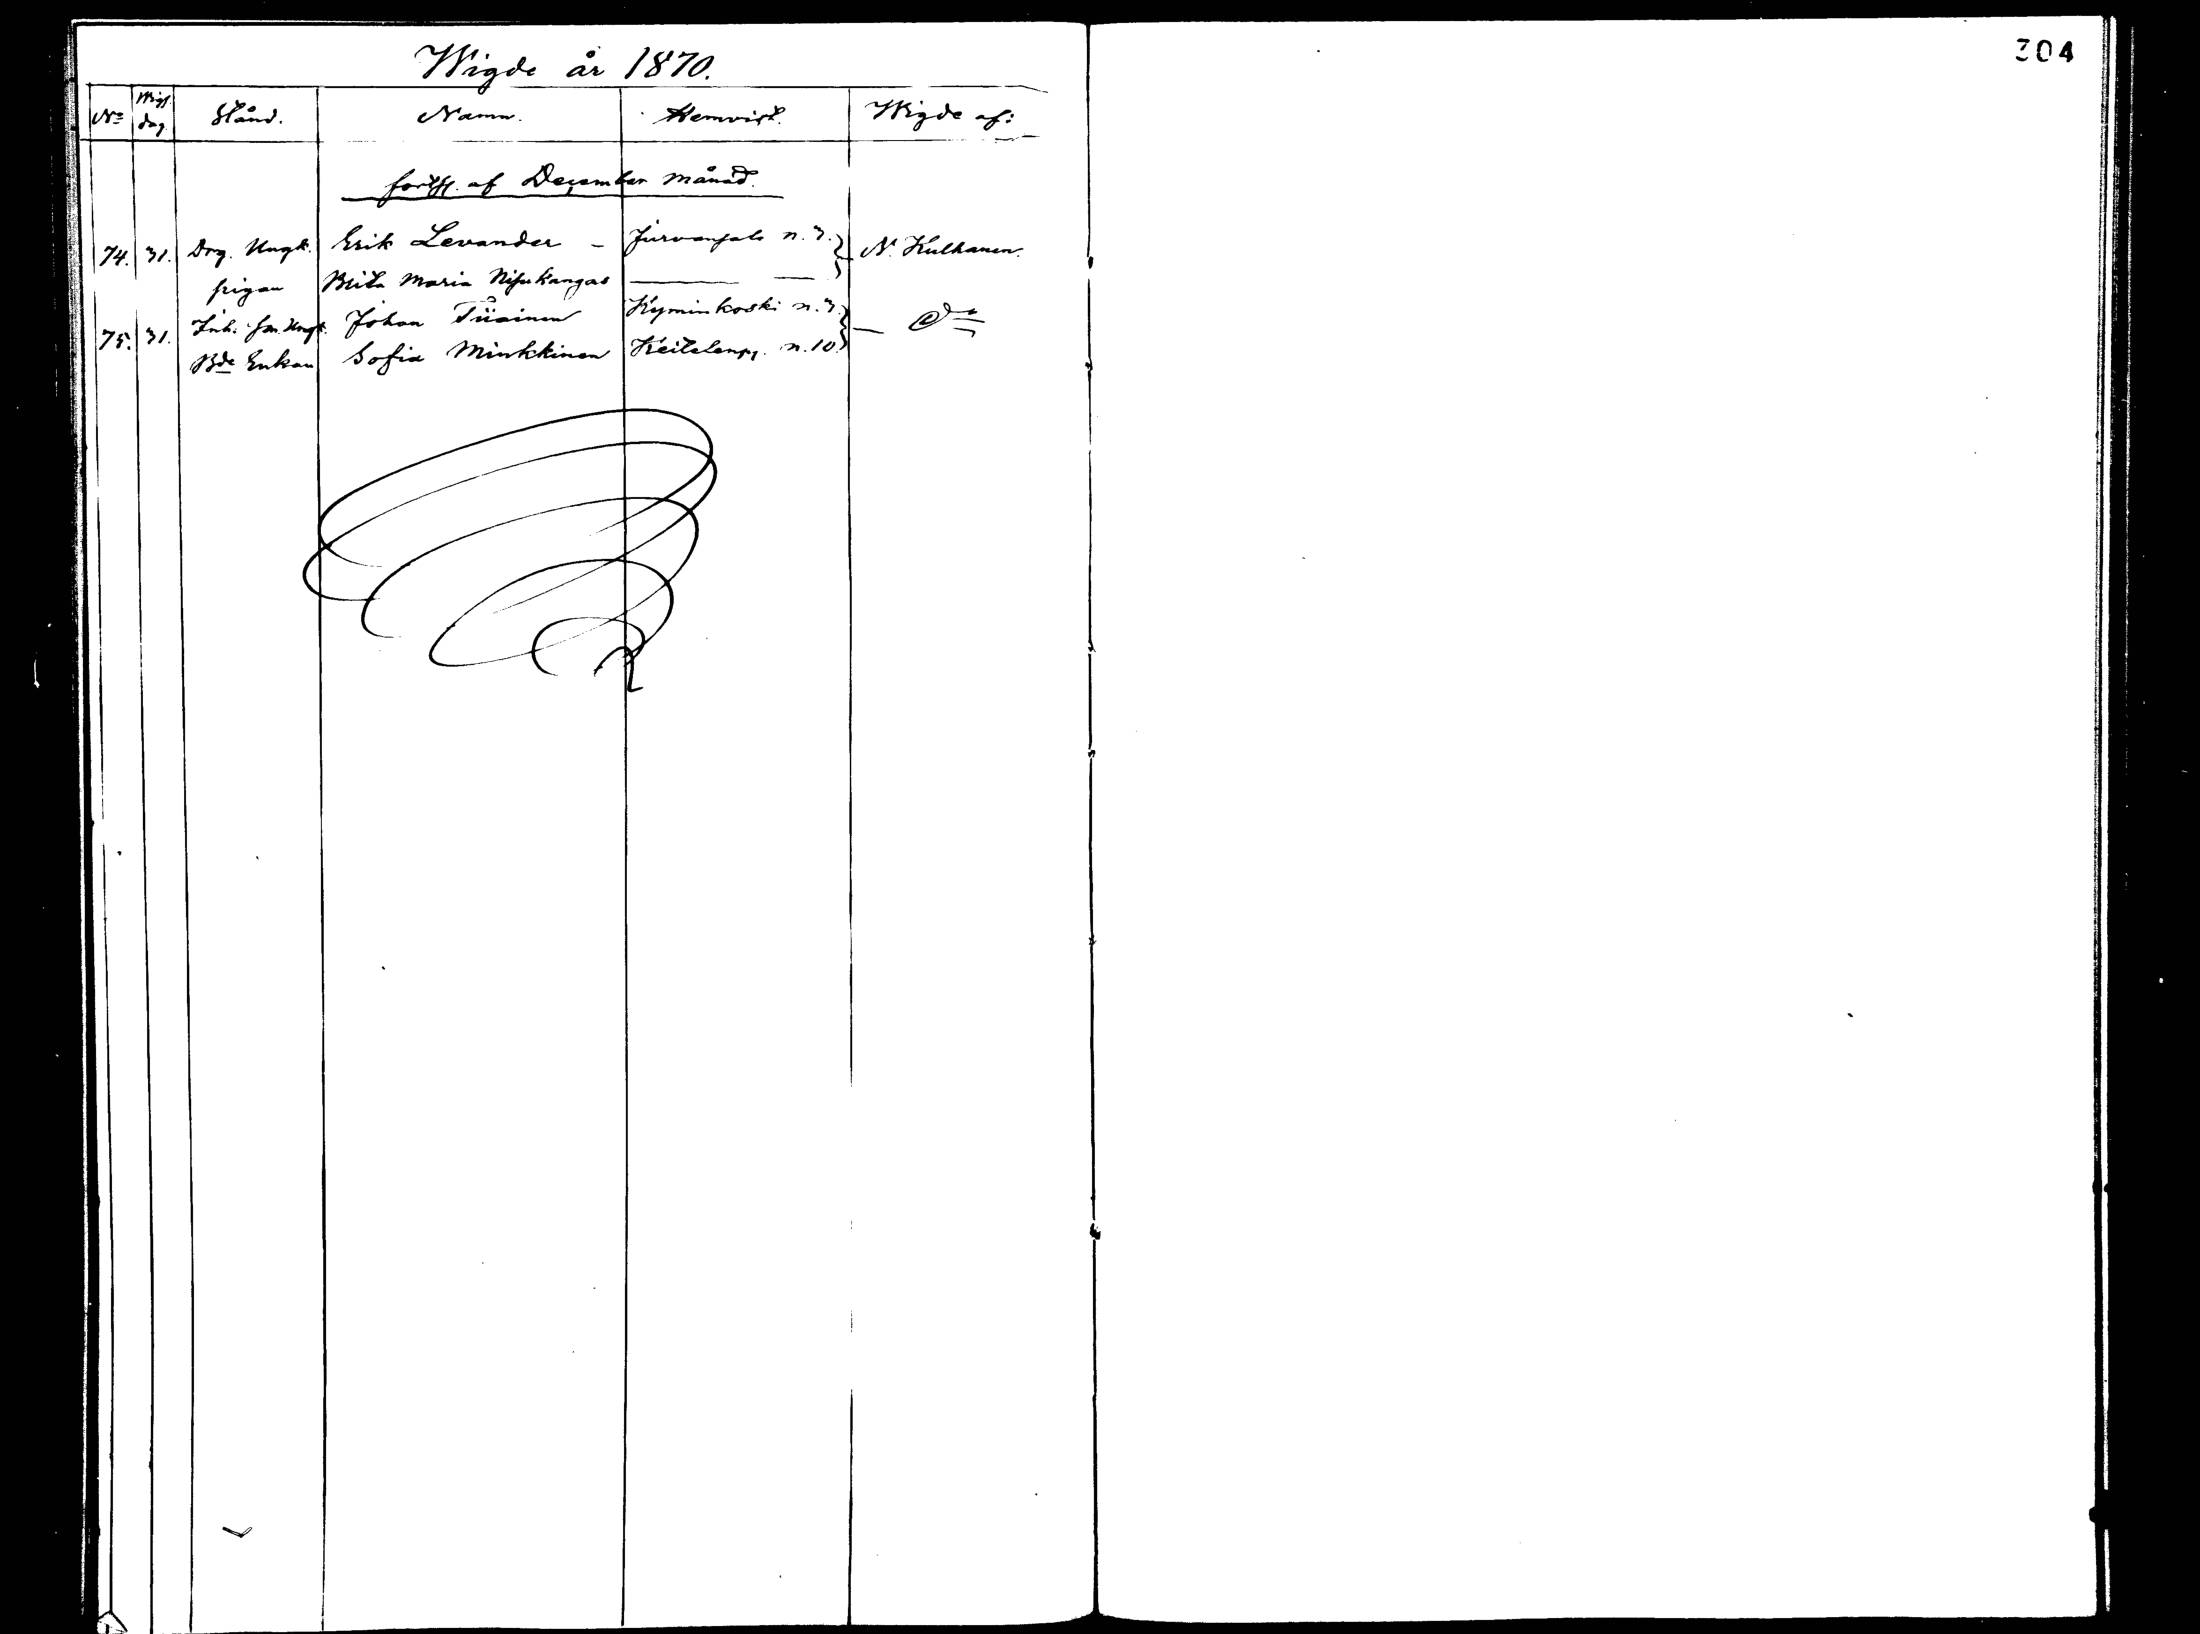 304
Wigde år 1870.
No Wigs. dag Stånd. Namn. Hemvist. Wigde af:
forts. af December månad.
74. 31. Drg. Ungk. Erik Levander – Jurvansalo n. 3. N. Kulhanen.
pigan Brita Maria Nisukangas
75. 31. Inh. Ungk. Johan Tiiainen Kyminkoski n. 3.
Bde Enkan Sofia Minkkinen n. 10